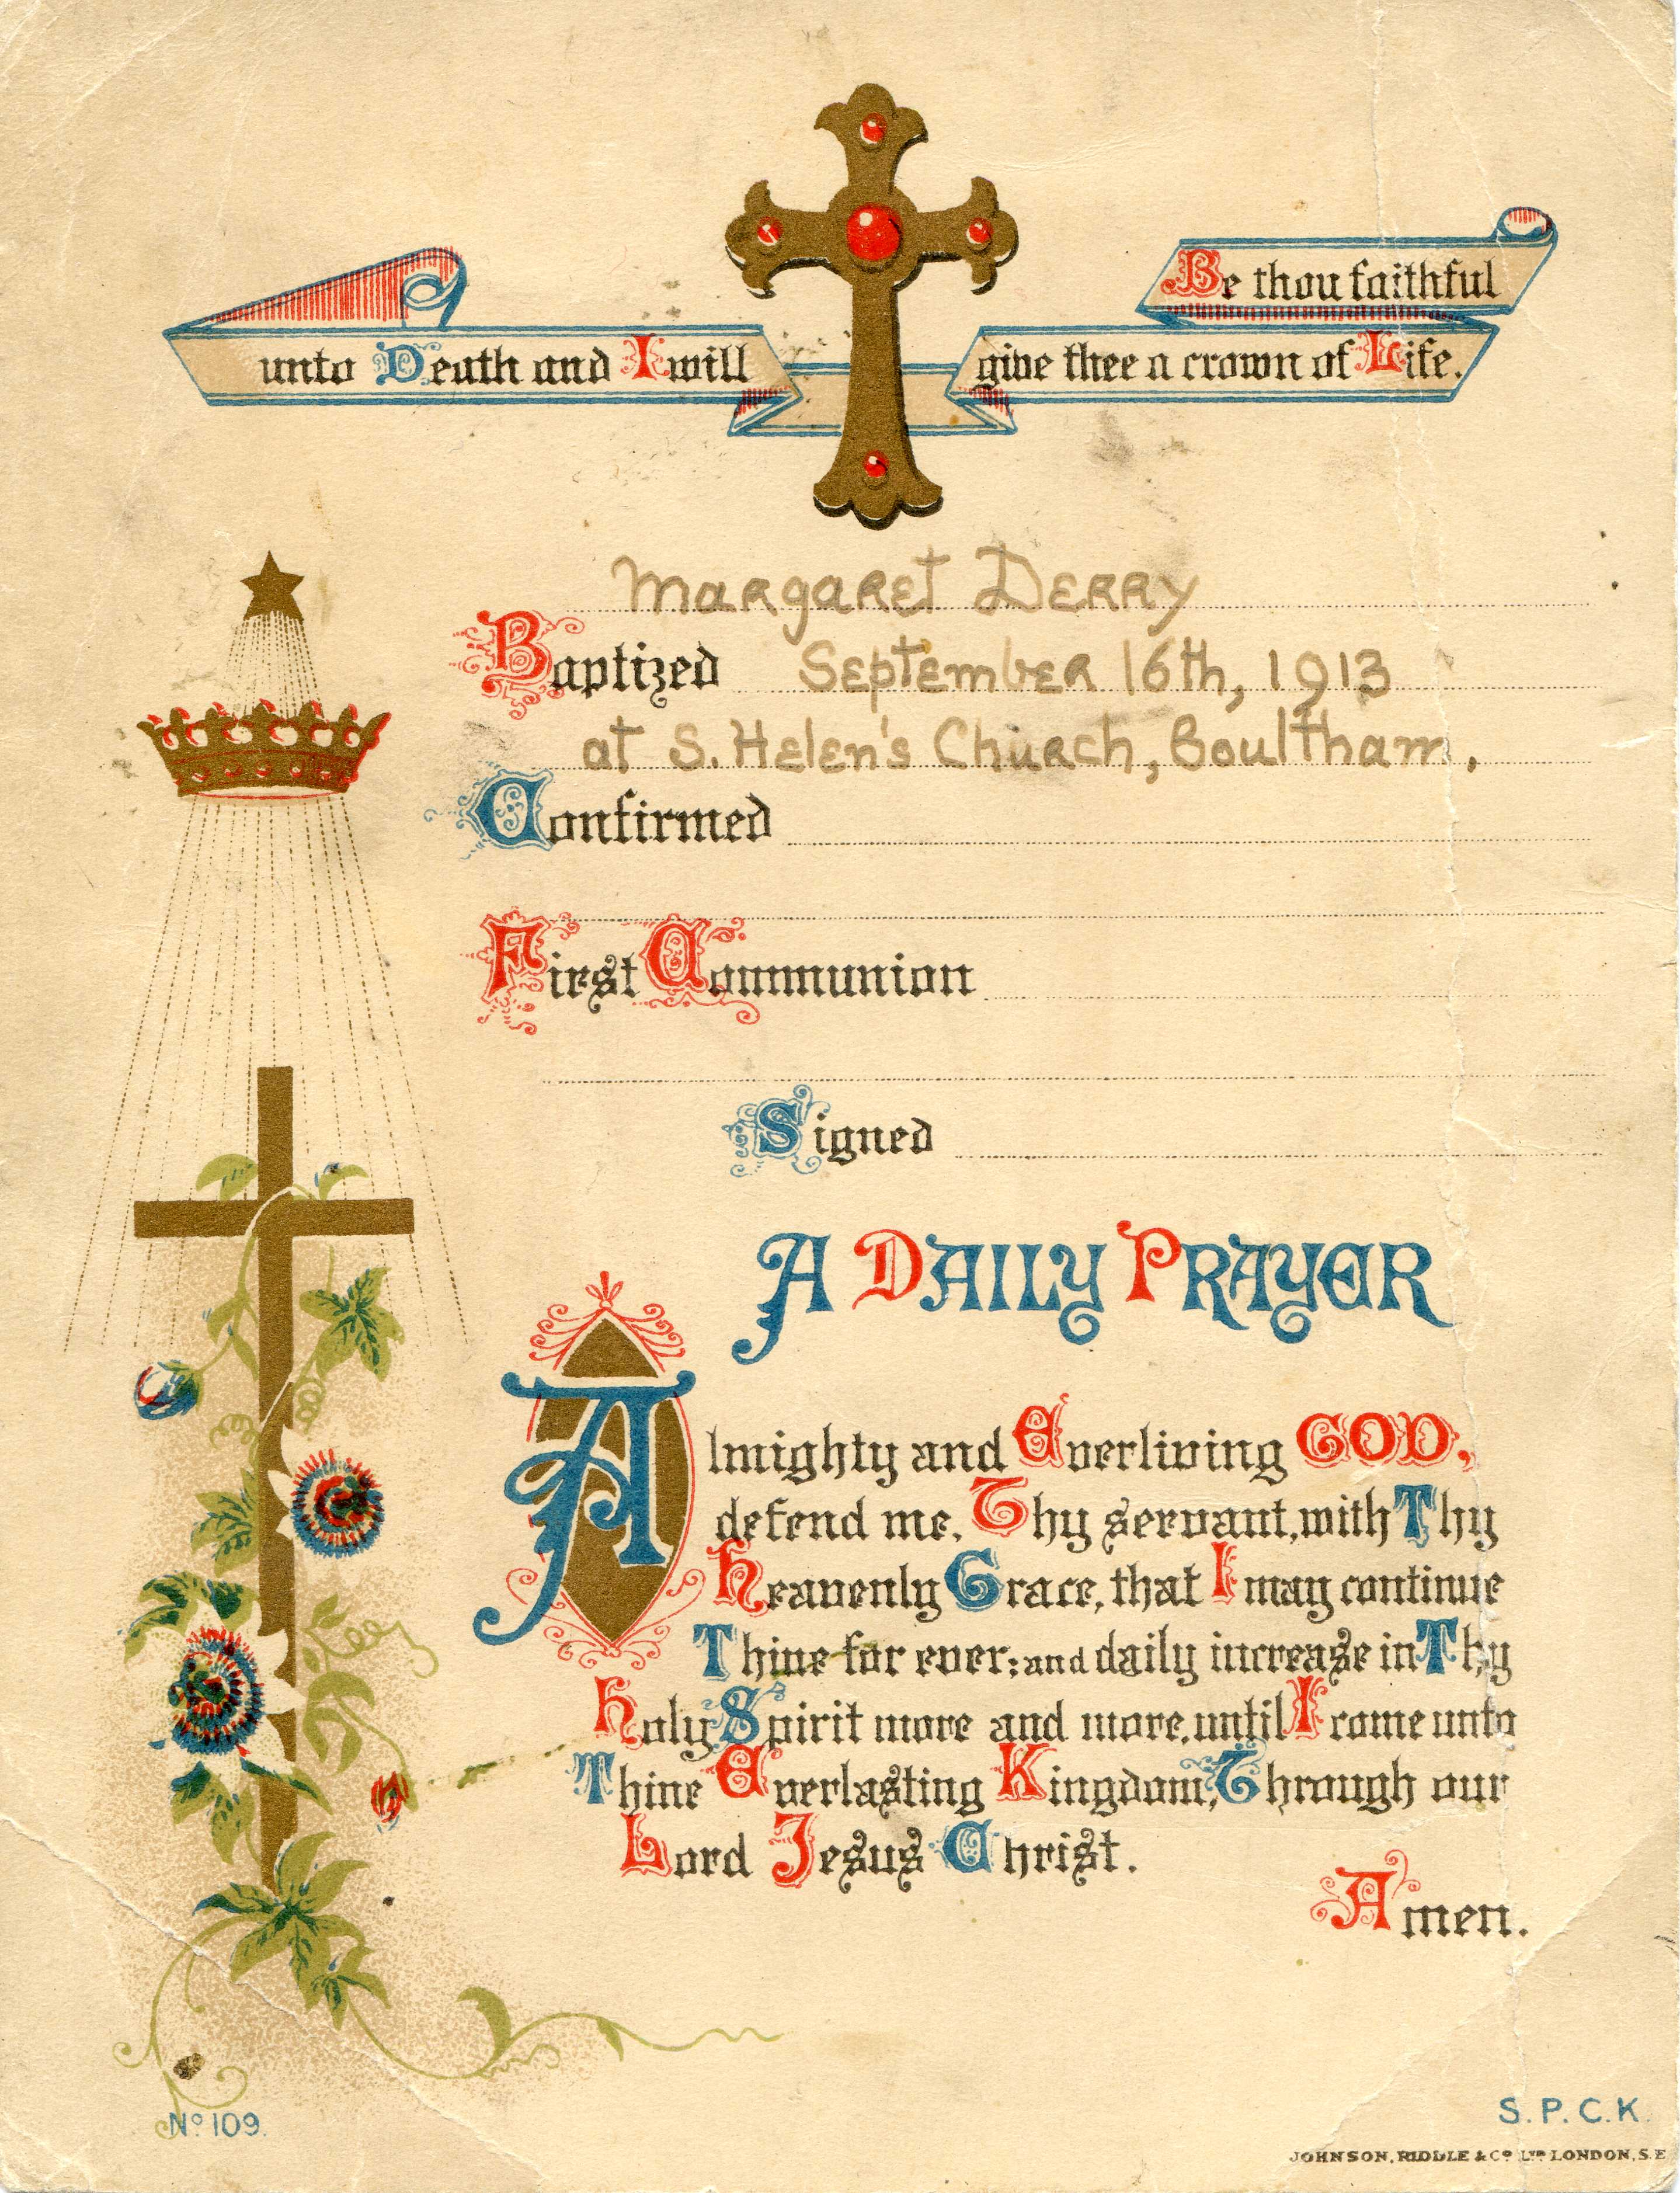 Be thou faithful
unto Death and I will give thee a crown of Life.
Margaret Derry
Baptized September 16th, 1913
at S. Helen's Church, Boultham,
Confirmed
First Communion
Signed
A DAILY PRAYER
Almighty and Everliving GOD,
defend me, Thy servant, with Thy
Heavenly Grace, that I may continue
Thine for ever; and daily increase in Thy
Holy Spirit more and more, until I come unto
Thine Everlasting Kingdom, Through our
Lord Jesus Christ.
Amen.
No 109.
S.P.C.K.
JOHNSON, RIDDLE & Co LTD LONDON, S.E